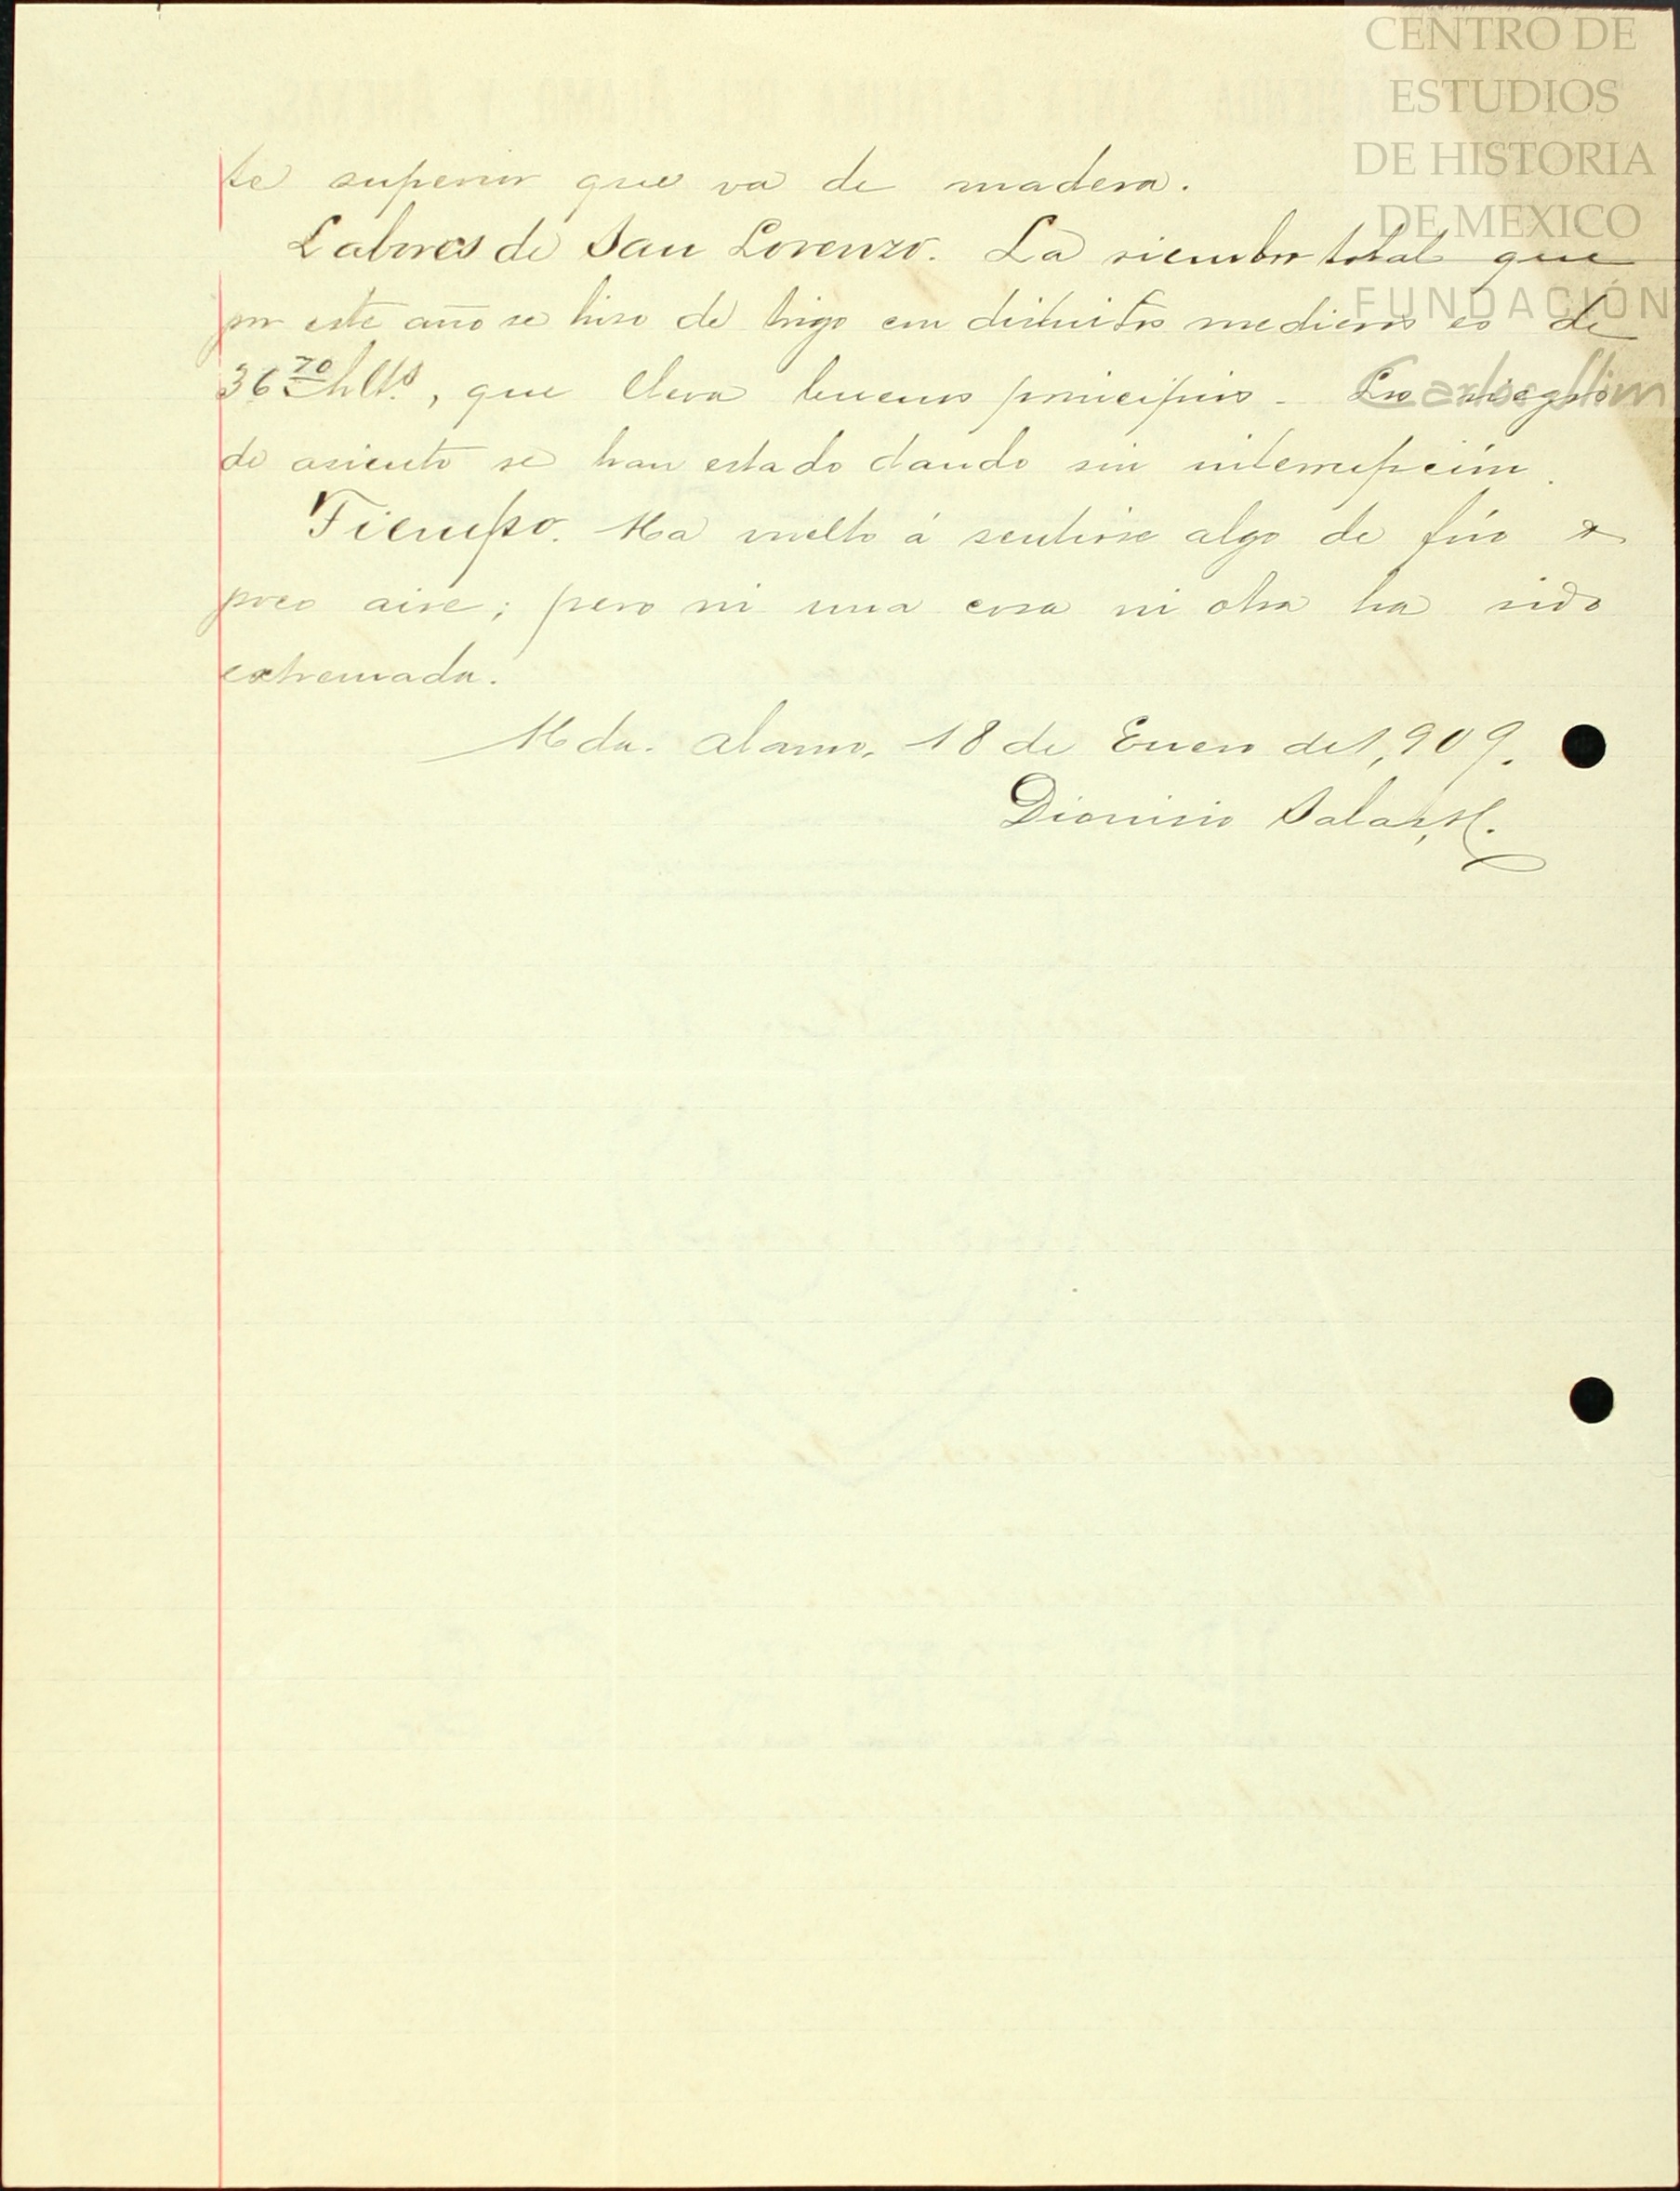 CENTRO DE
ESTUDIOS
DE HISTORIA
DE MEXICO
FUNDACIÓN
Carlos Slim
te superior que va de madera.
Labores de San Lorenzo. La siembra total que
por este año se hiso de trigo con distintos medieros es de
36 70 hlts., que lleva buenos principios. Los riegos
de asiento se han estado dando sin interrupción.
Tiempo. Ha vuelto á sentirse algo de frío y
poco aire; pero ni una cosa ni otra ha sido
extremada.
Hda. Alamo, 18 de Enero de 1,909.
Dionisio Salas, H.